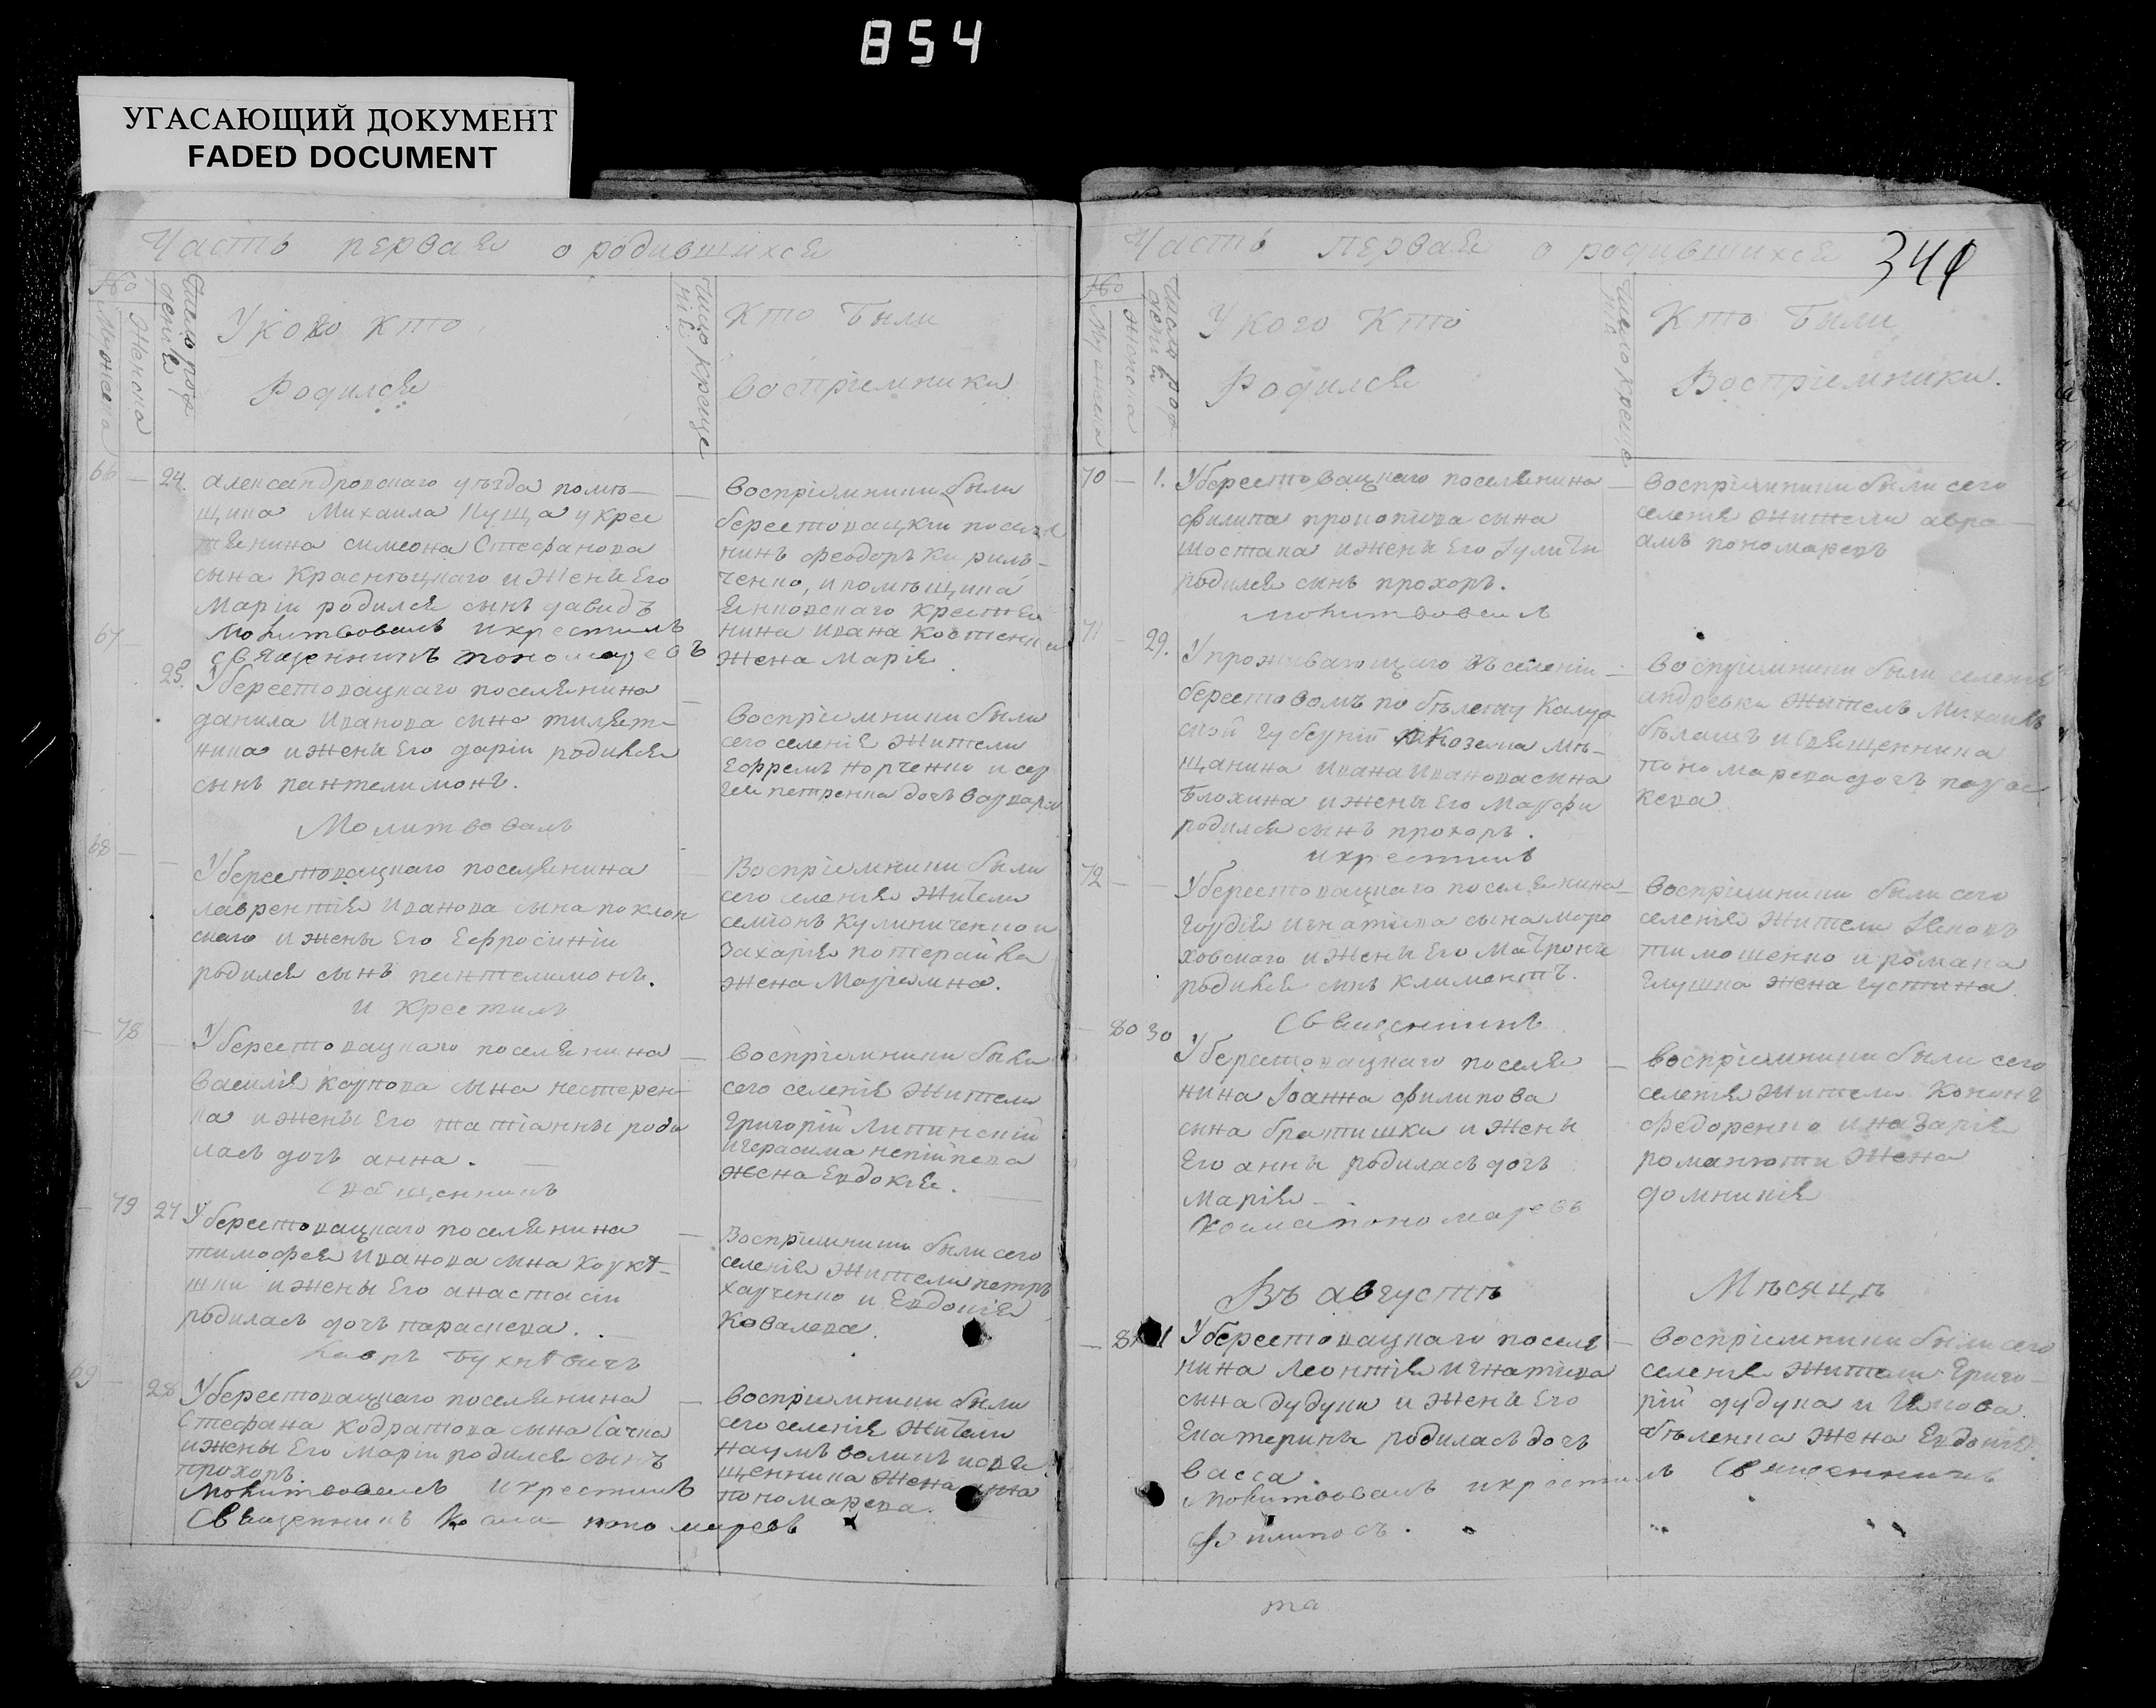 854
УГАСАЮЩИЙ ДОКУМЕНТ
FADED DOCUMENT
Часть первая о родившихся
№
Мужеска
Женска
Число рождения
У кого кто
Родился
Число крещения
Кто были
Восприемники
66 — 24.
александровскаго уѣзда помѣ—
щика Михаила Куща у крес
тянина симеона Стефанова
сына Красницкаго и жены Его
Маріи родился сынъ давидъ
Молитвовалъ и крестилъ
священникъ пономаревъ
Восприемники были
берестовацкій поселя
нинъ Феодоръ Кириль-
ченко, и помѣщика
крестья
нина ивана
жена Марія
67 — 25.
У берестовацкаго поселянина
данила Иванова сына
и жены Его даріи родился
сынъ пантелимонъ.
Молитвовалъ
Восприемники были
сего селенія жители
Ефремъ Норченко и сер
гея петренка дочь варвара
68 —
У берестовацкаго поселянина
лаврентія Иванова сына поклон
скаго и жены Его Ефросиніи
родился сынъ пантелимонъ.
и Крестилъ
Восприемники были
сего селенія жители
семіонъ Кулиниченко и
захарія потерайка
жена Маріамна.
— 78 —
У берестовацкаго поселянина
василія Карпова сына нестерен-
ка и жены Его татіанны роди
лась дочь анна.
Священникъ
Восприемники были
сего селенія жители
Григорій Липинскій
и герасима
жена Евдокія.
— 79 27
У берестовацкаго поселянина
тимофея Иванова сына
и жены Его анастасіи
родилась дочь параскева.
Восприемники были сего
селенія жители петръ
харченко и Евдокія
Ковалева.
69 — 28
У берестовацкаго поселянина
Стефана Кодратова сына Сачка
и жены Его Маріи родился сынъ
прохоръ.
Молитвовалъ и крестилъ
Священникъ Косма пономаревъ
Восприемники были
сего селенія жители
наумъ воликъ и свя
щенника жена анна
пономарева.
Часть первая о родившихся
341
№
Мужеска
Женска
Число рождения
У кого Кто
Родился
Число крещения
Кто Были
Восприемники.
70 — 1.
У берестовацкаго поселянина
филипа прокопіева сына
шостака и жены Его Гуліты
родился сынъ прохоръ.
молитвовалъ
Восприемники были сего
селенія жители авра
амъ пономаревъ
71 — 29.
У проживающаго въ селеніи
берестовомъ по билету Калуж
ской губерніи Козелка мѣ-
щанина Ивана Иванова сына
Блохина и жены Его Марфы
родился сынъ прохоръ.
и крестилъ
Восприемники были селенія
андревка житель Михаилъ
бѣлашъ и священника
пономарева дочь парас
кева
72 —
У берестовацкаго поселянина
гордія игнатіева сына моро
ховскаго и жены Его Матроны
родился сынъ Климентъ.
Священникъ
Восприемники были сего
селенія жители Іаковъ
тимошенко и романа
глушка жена густина.
— 80 30
У берестовацкаго поселя
нина Іоанна филипова
сына братишки и жены
Его анны родилась дочь
Марія.
Косма пономаревъ
Восприемники были сего
селенія жители Кононъ
Федоренко и назарія
романюти жена
домникія
Въ августѣ Мѣсяцѣ
— 81 1
У берестовацкаго поселя
нина Леонтія Игнатіева
сына дудуки и жены Его
Екатерины родилась дочь
васса.
Молитвовалъ и крестилъ Священникъ
Филиповъ.
Восприемники были сего
селенія жители Григо-
рій дудука и Іакова
бѣленка жена Евдокія
та